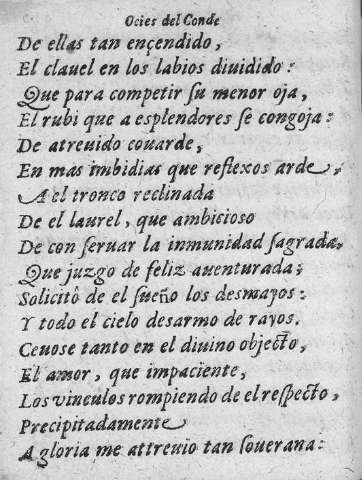 Ocios del Conde
De ellas tan ençendido,
El clauel en los labios diuidido:
Que para competir ſu menor oja,
El rubi que a esplendores ſe congoja:
De atreuido couarde,
En mas imbidias que reflexos arde,
A el tronco reclinada
De el laurel, que ambicioso
De con ſeruar la inmunidad ſagrada,
Que juzgo de feliz auenturada;
Solicitô de el ſueño los desmayos:
Y todo el cielo desarmo de rayos.
Ceuose tanto en el diuino objecto,
El amor, que impaciente,
Los vinculos rompiendo de el reſpecto,
Precipitadamente
A gloria me attreuio tan ſouerana: